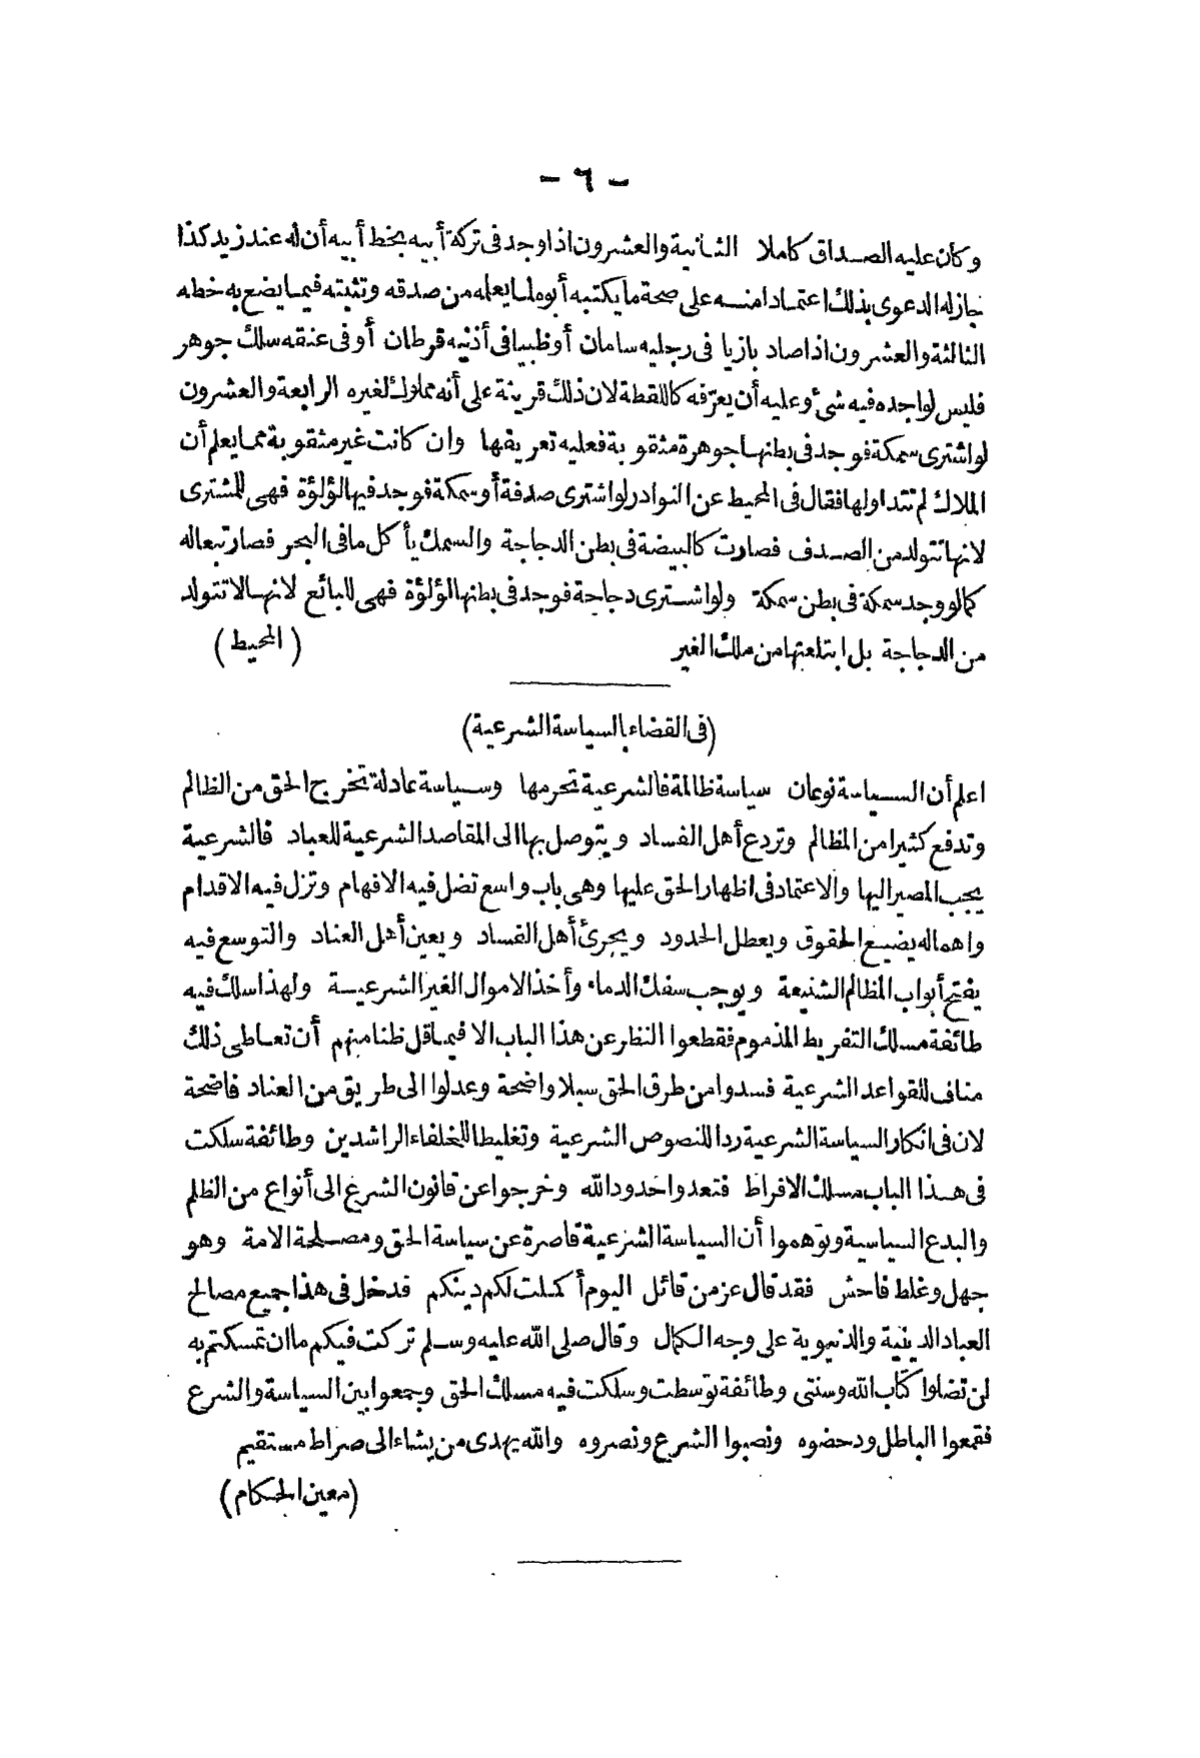 - ٦ -
وكان عليه الصداق كاملا الثانية والعشرون اذا وجد فى تركة أبيه بخط أبيه أن له عند زيد كذا
جاز له الدعوى بذلك اعتمادا منه على صحة ما يكتبه أبوه لما يعلمه من صدقه وتثبته فيما يضع به خطه
الثالثة والعشرون اذا صاد بازيا فى رجليه سامان أو ظبيا فى أذنيه قرطان أو فى عنقه سلك جوهر
فليس لواجده فيه شئ وعليه أن يعرّفه كاللقطة لان ذلك قرينة على أنه مملوك لغيره الرابعة والعشرون
لو اشترى سمكة فوجد فى بطنها جوهرة مثقوبة فعليه تعريفها وان كانت غير مثقوبة مما يعلم أن
الملاك لم تتداولها فقال فى المحيط عن النوادر لو اشترى صدفة أو سمكة فوجد فيها لؤلؤة فهى للمشترى
لانها تتولد من الصدف فصارت كالبيضة فى بطن الدجاجة والسمك يأكل ما فى البحر فصار تبعا له
كما لو وجد سمكة فى بطن سمكة ولو اشترى دجاجة فوجد فى بطنها لؤلؤة فهى للبائع لانها لا تتولد
من الدجاجة بل ابتلعتها من ملك الغير (المحيط)
(فى القضاء بالسياسة الشرعية)
اعلم أن السياسة نوعان سياسة ظالمة فالشرعية تحرمها وسياسة عادلة تخرج الحق من الظالم
وتدفع كثيرا من المظالم وتردع أهل الفساد ويتوصل بها الى المقاصد الشرعية للعباد فالشرعية
يجب المصير اليها والاعتماد فى اظهار الحق عليها وهى باب واسع تضل فيه الافهام وتزل فيه الاقدام
واهماله يضيع الحقوق ويعطل الحدود ويجرئ أهل الفساد ويعين أهل العناد والتوسع فيه
يفتح أبواب المظالم الشنيعة ويوجب سفك الدماء وأخذ الاموال الغير الشرعية ولهذا سلك فيه
طائفة مسلك التفريط المذموم فقطعوا النظر عن هذا الباب الا فيما قل ظنا منهم أن تعاطى ذلك
مناف للقواعد الشرعية فسدوا من طرق الحق سبلا واضحة وعدلوا الى طريق من العناد فاضحة
لان فى انكار السياسة الشرعية ردا للنصوص الشرعية وتغليطا للخلفاء الراشدين وطائفة سلكت
فى هذا الباب مسلك الافراط فتعدوا حدود الله وخرجوا عن قانون الشرع الى أنواع من الظلم
والبدع السياسية وتوهموا أن السياسة الشرعية قاصرة عن سياسة الحق ومصلحة الامة وهو
جهل وغلط فاحش فقد قال عز من قائل اليوم أكملت لكم دينكم فدخل فى هذا جميع مصالح
العباد الدينية والدنيوية على وجه الكمال وقال صلى الله عليه وسلم تركت فيكم ما ان تمسكتم به
لن تضلوا كتاب الله وسنتى وطائفة توسطت وسلكت فيه مسلك الحق وجمعوا بين السياسة والشرع
فقمعوا الباطل ودحضوه ونصبوا الشرع ونصروه والله يهدى من يشاء الى صراط مستقيم
(معين الحكام)